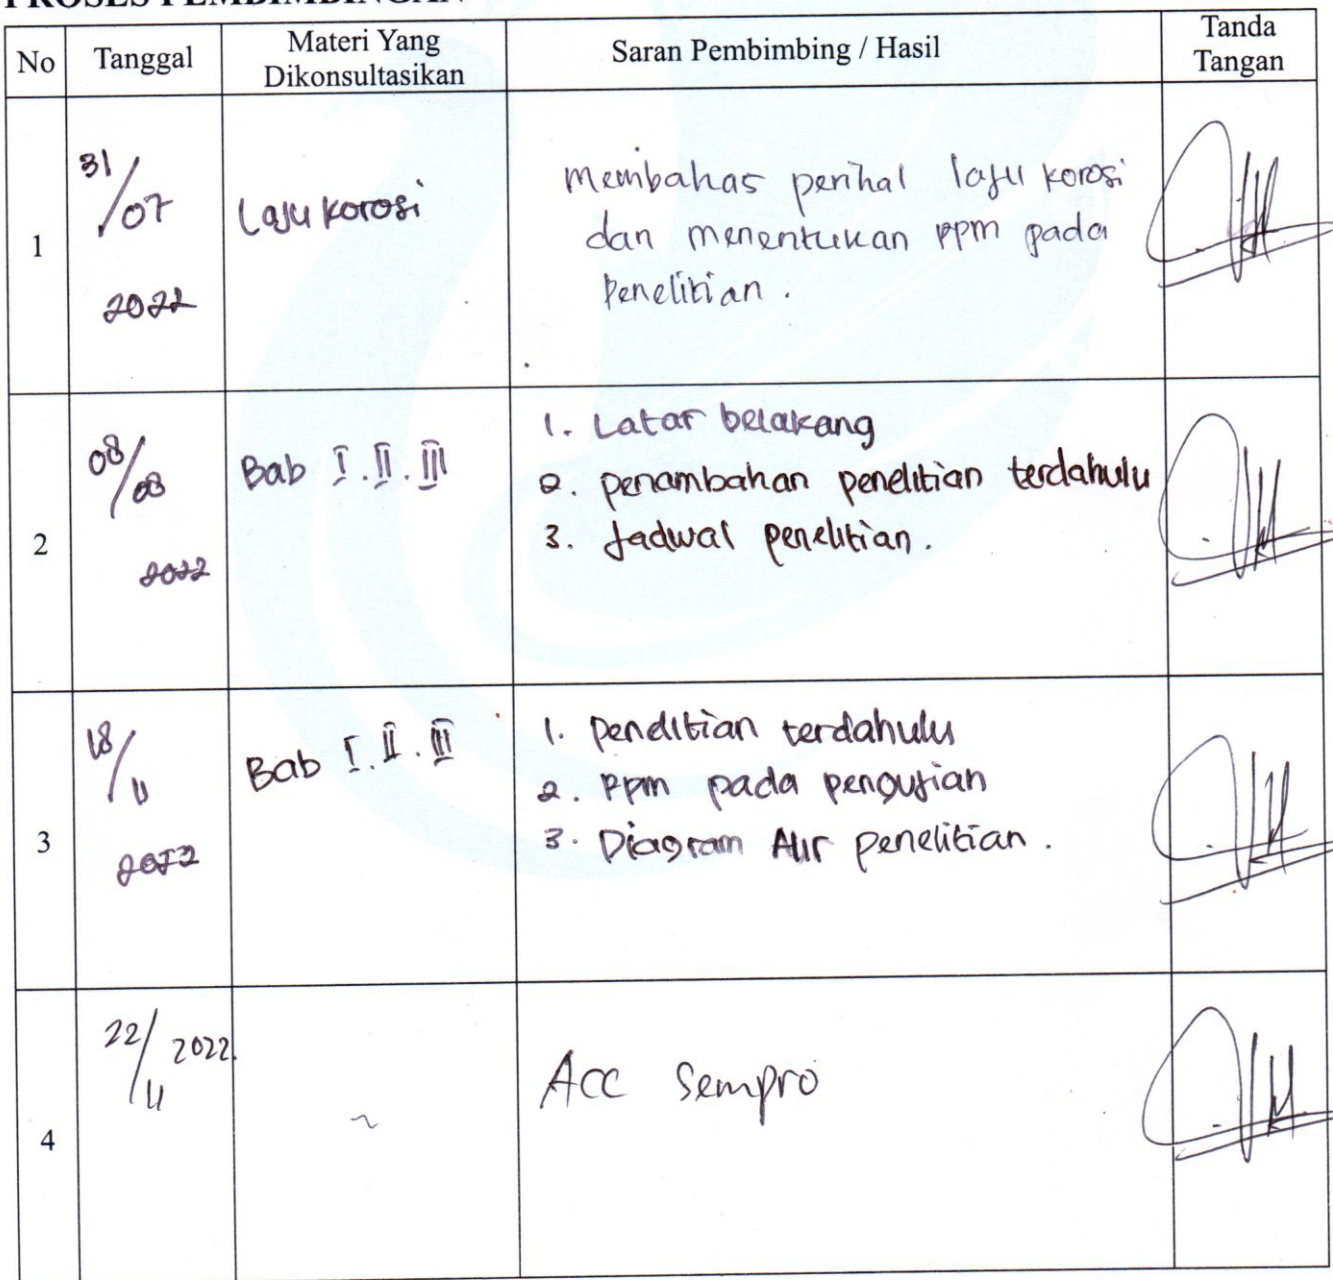 PROSES PEMBIMBINGAN
No
Tanggal
Materi Yang
Dikonsultasikan
Saran Pembimbing / Hasil
Tanda
Tangan
1
31/07
2022
Laju korosi
membahas perihal laju korosi
dan menentukan ppm pada
Penelitian.
2
08/08
2022
Bab I. II. III
1. Latar belakang
2. penambahan penelitian terdahulu
3. Jadwal penelitian.
3
18/11
2022
Bab I. II. III
1. penelitian terdahulu
2. PPm pada pengujian
3. Diagram Alir penelitian.
4
22/11 2022.
~
Acc Sempro